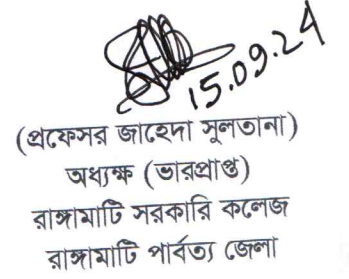 15.09.24
(প্রফেসর জাহেদা সুলতানা)
অধ্যক্ষ (ভারপ্রাপ্ত)
রাঙ্গামাটি সরকারি কলেজ
রাঙ্গামাটি পার্বত্য জেলা